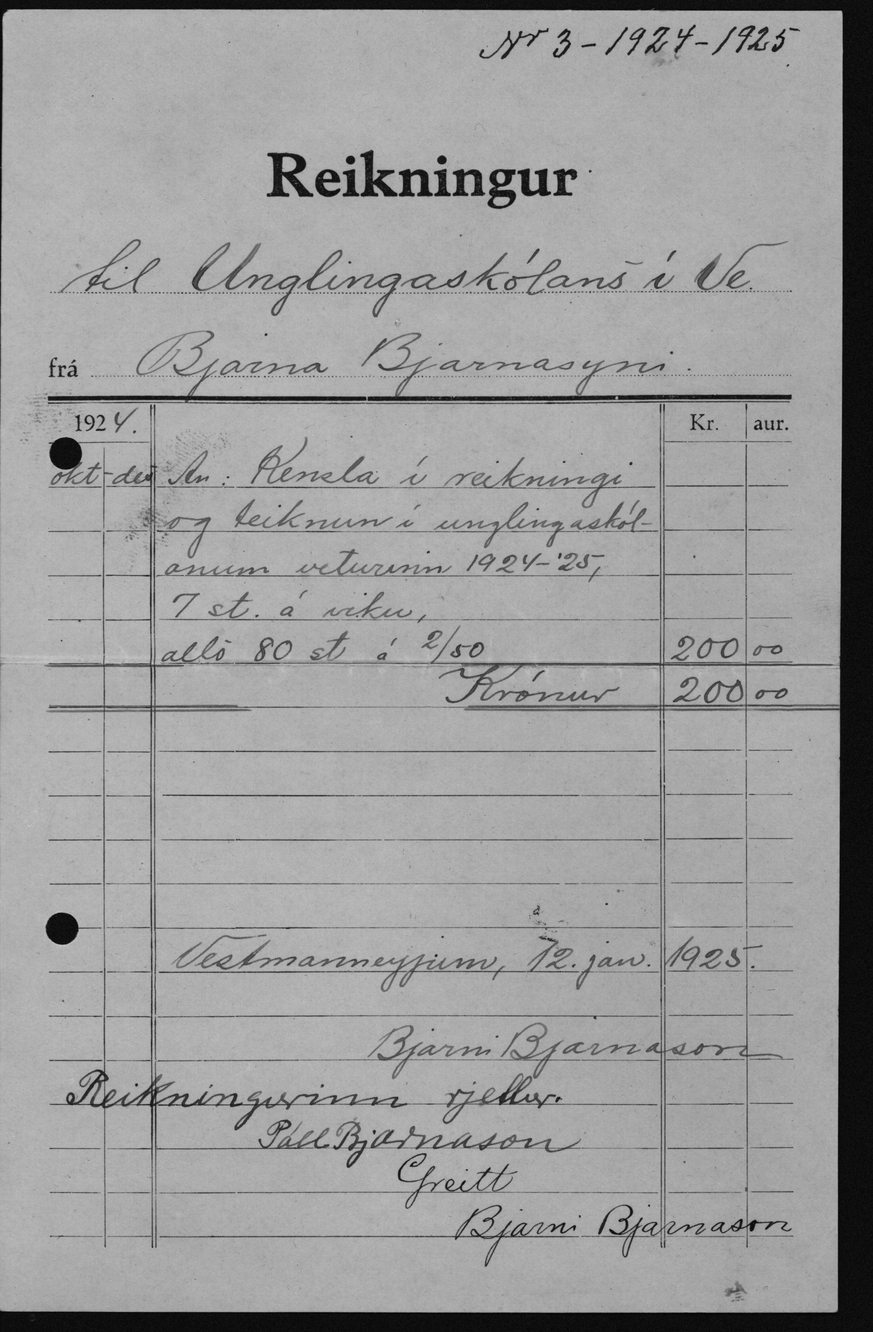 Nr 3 - 1924 - 1925
Reikningur
til Unglingaskólans í Ve.
frá Bjarna Bjarnasyni.
1924. Kr. aur.
okt - des An: Kensla í reikningi
og teiknun í unglingaskól-
anum veturinn 1924-'25,
7 st. á viku,
alls 80 st á 2/50 200 00
Krónur 200 00
Vestmanneyjum, 12. jan. 1925.
Bjarni Bjarnason
Reikningurinn rjettur.
Páll Bjarnason
Greitt
Bjarni Bjarnason